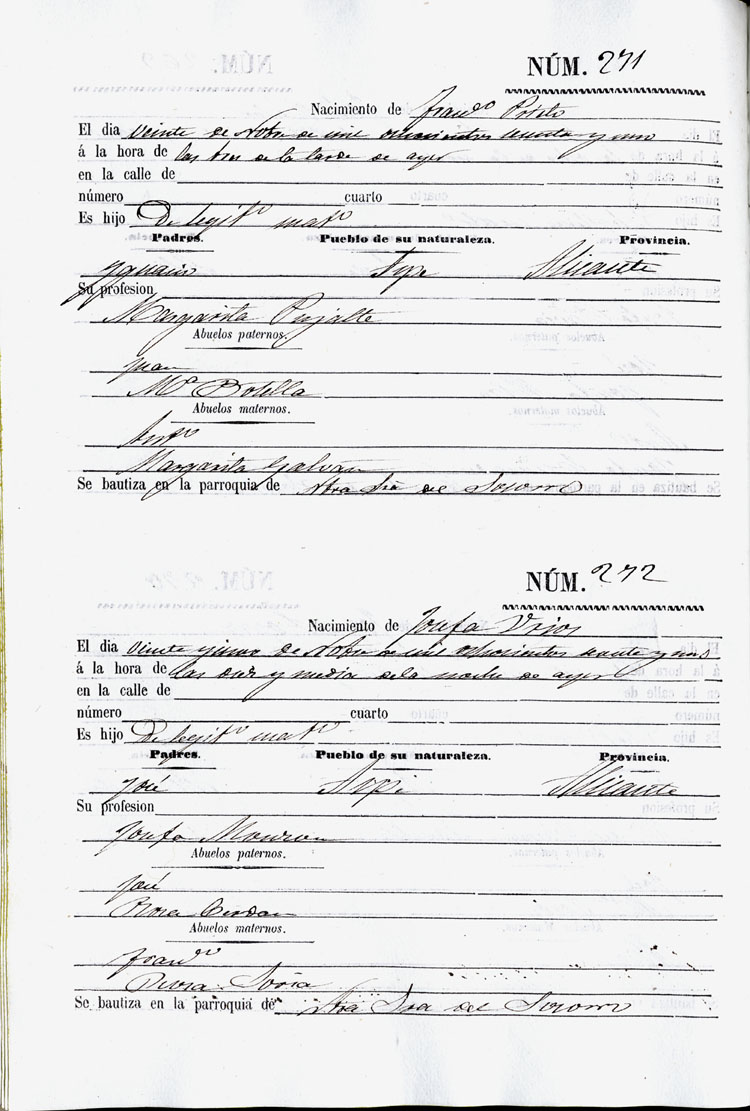 NÚM. 271
Nacimiento de Fran.co Prieto
El dia veinte de Nbre de mil ochocientos y uno
á la hora de las tres de la tarde de ayer
en la calle de
número cuarto
Es hijo De legit.o mat.o
Padres. Pueblo de su naturaleza. Provincia.
Ygnacio Aspe Alicante
Su profesion
Margarita Pujalte
Abuelos paternos.
Juan
M.a Botella
Abuelos maternos.
Ant.o
Margarita Galvañ
Se bautiza en la parroquia de Ntra Sra del Socorro
NÚM. 272
Nacimiento de Josefa
El dia veinte y uno de Nbre de mil ochocientos y uno
á la hora de las y media de la noche de ayer
en la calle de
número cuarto
Es hijo De legit.o mat.o
Padres. Pueblo de su naturaleza. Provincia.
José Aspe Alicante
Su profesion
Josefa
Abuelos paternos.
José
Rosa Cerdan
Abuelos maternos.
Fran.co
Soria
Se bautiza en la parroquia de Ntra Sra del Socorro